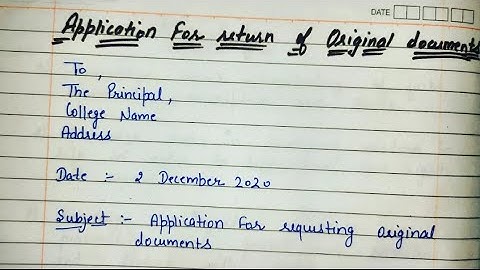 DATE
Application For return of Original documents
To,
The Principal,
College Name
Address
Date :- 2 December 2020
Subject :- Application For requsting original
documents